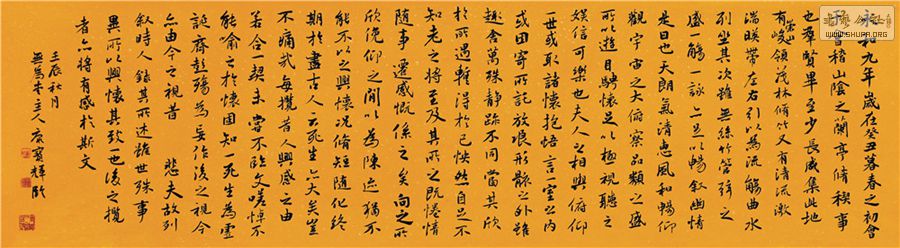 永和九年歲在癸丑暮春之初會
于會稽山陰之蘭亭脩稧事
也群賢畢至少長咸集此地
有崇山峻領茂林脩竹又有清流激
湍暎帶左右引以為流觴曲水
列坐其次雖無絲竹管弦之
盛一觴一詠亦足以暢叙幽情
是日也天朗氣清惠風和暢仰
觀宇宙之大俯察品類之盛
所以遊目騁懷足以極視聽之
娛信可樂也夫人之相與俯仰
一世或取諸懷抱悟言一室之內
或因寄所託放浪形骸之外雖
趣舍萬殊靜躁不同當其欣
於所遇蹔得於己怏然自足不
知老之將至及其所之既惓情
隨事遷感慨係之矣向之所
欣俛仰之間以為陳迹猶不
能不以之興懷況脩短隨化終
期於盡古人云死生亦大矣豈
不痛哉每攬昔人興感之由
若合一契未嘗不臨文嗟悼不
能喻之於懷固知一死生為虛
誕齊彭殤為妄作後之視今
亦由今之視昔 悲夫故列
叙時人錄其所述雖世殊事
異所以興懷其致一也後之攬
者亦將有感於斯文
壬辰秋月
主人
WWW.SHUFA.ORG